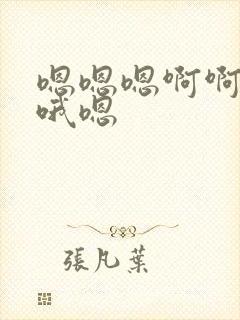 嗯嗯嗯啊啊
哦嗯
張凡葉